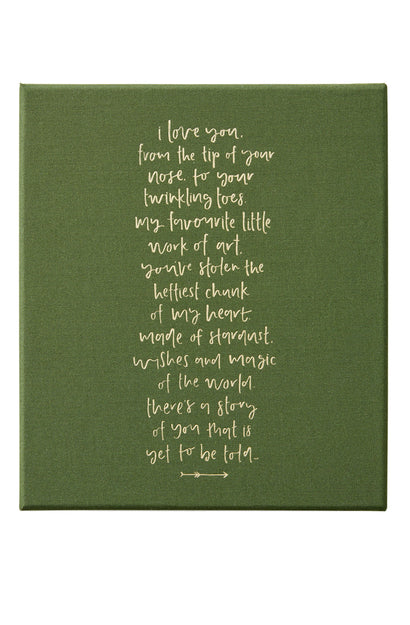 i love you.
from the tip of your
nose. to your
twinkling toes.
my favourite little
work of art.
you've stolen the
heftiest chunk
of my heart.
made of stardust.
wishes and magic
of the world.
there's a story
of you that is
yet to be told...